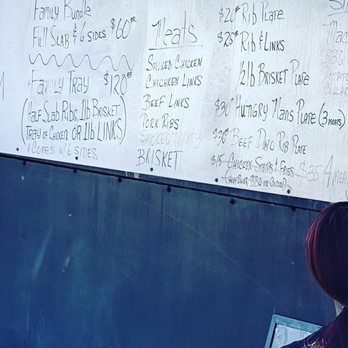 Family Bundle
Full Slab & 6 sides $60
Family Tray $120
(Half Slab Ribs 1lb Brisket
Tray of Chicken or 1lb Links)
Comes w/ 6 sides
Meats
Smoked Chicken
Chicken Links
Beef Links
Pork Ribs
Smoked Turkey
Brisket
$20 Rib Plate
$25 Rib & Links
1/2lb Brisket Plate
Hungry Mans Plate (3 meats)
Beef Dino Rib Plate
$15 Chicken & Fries
$35 4 Meat